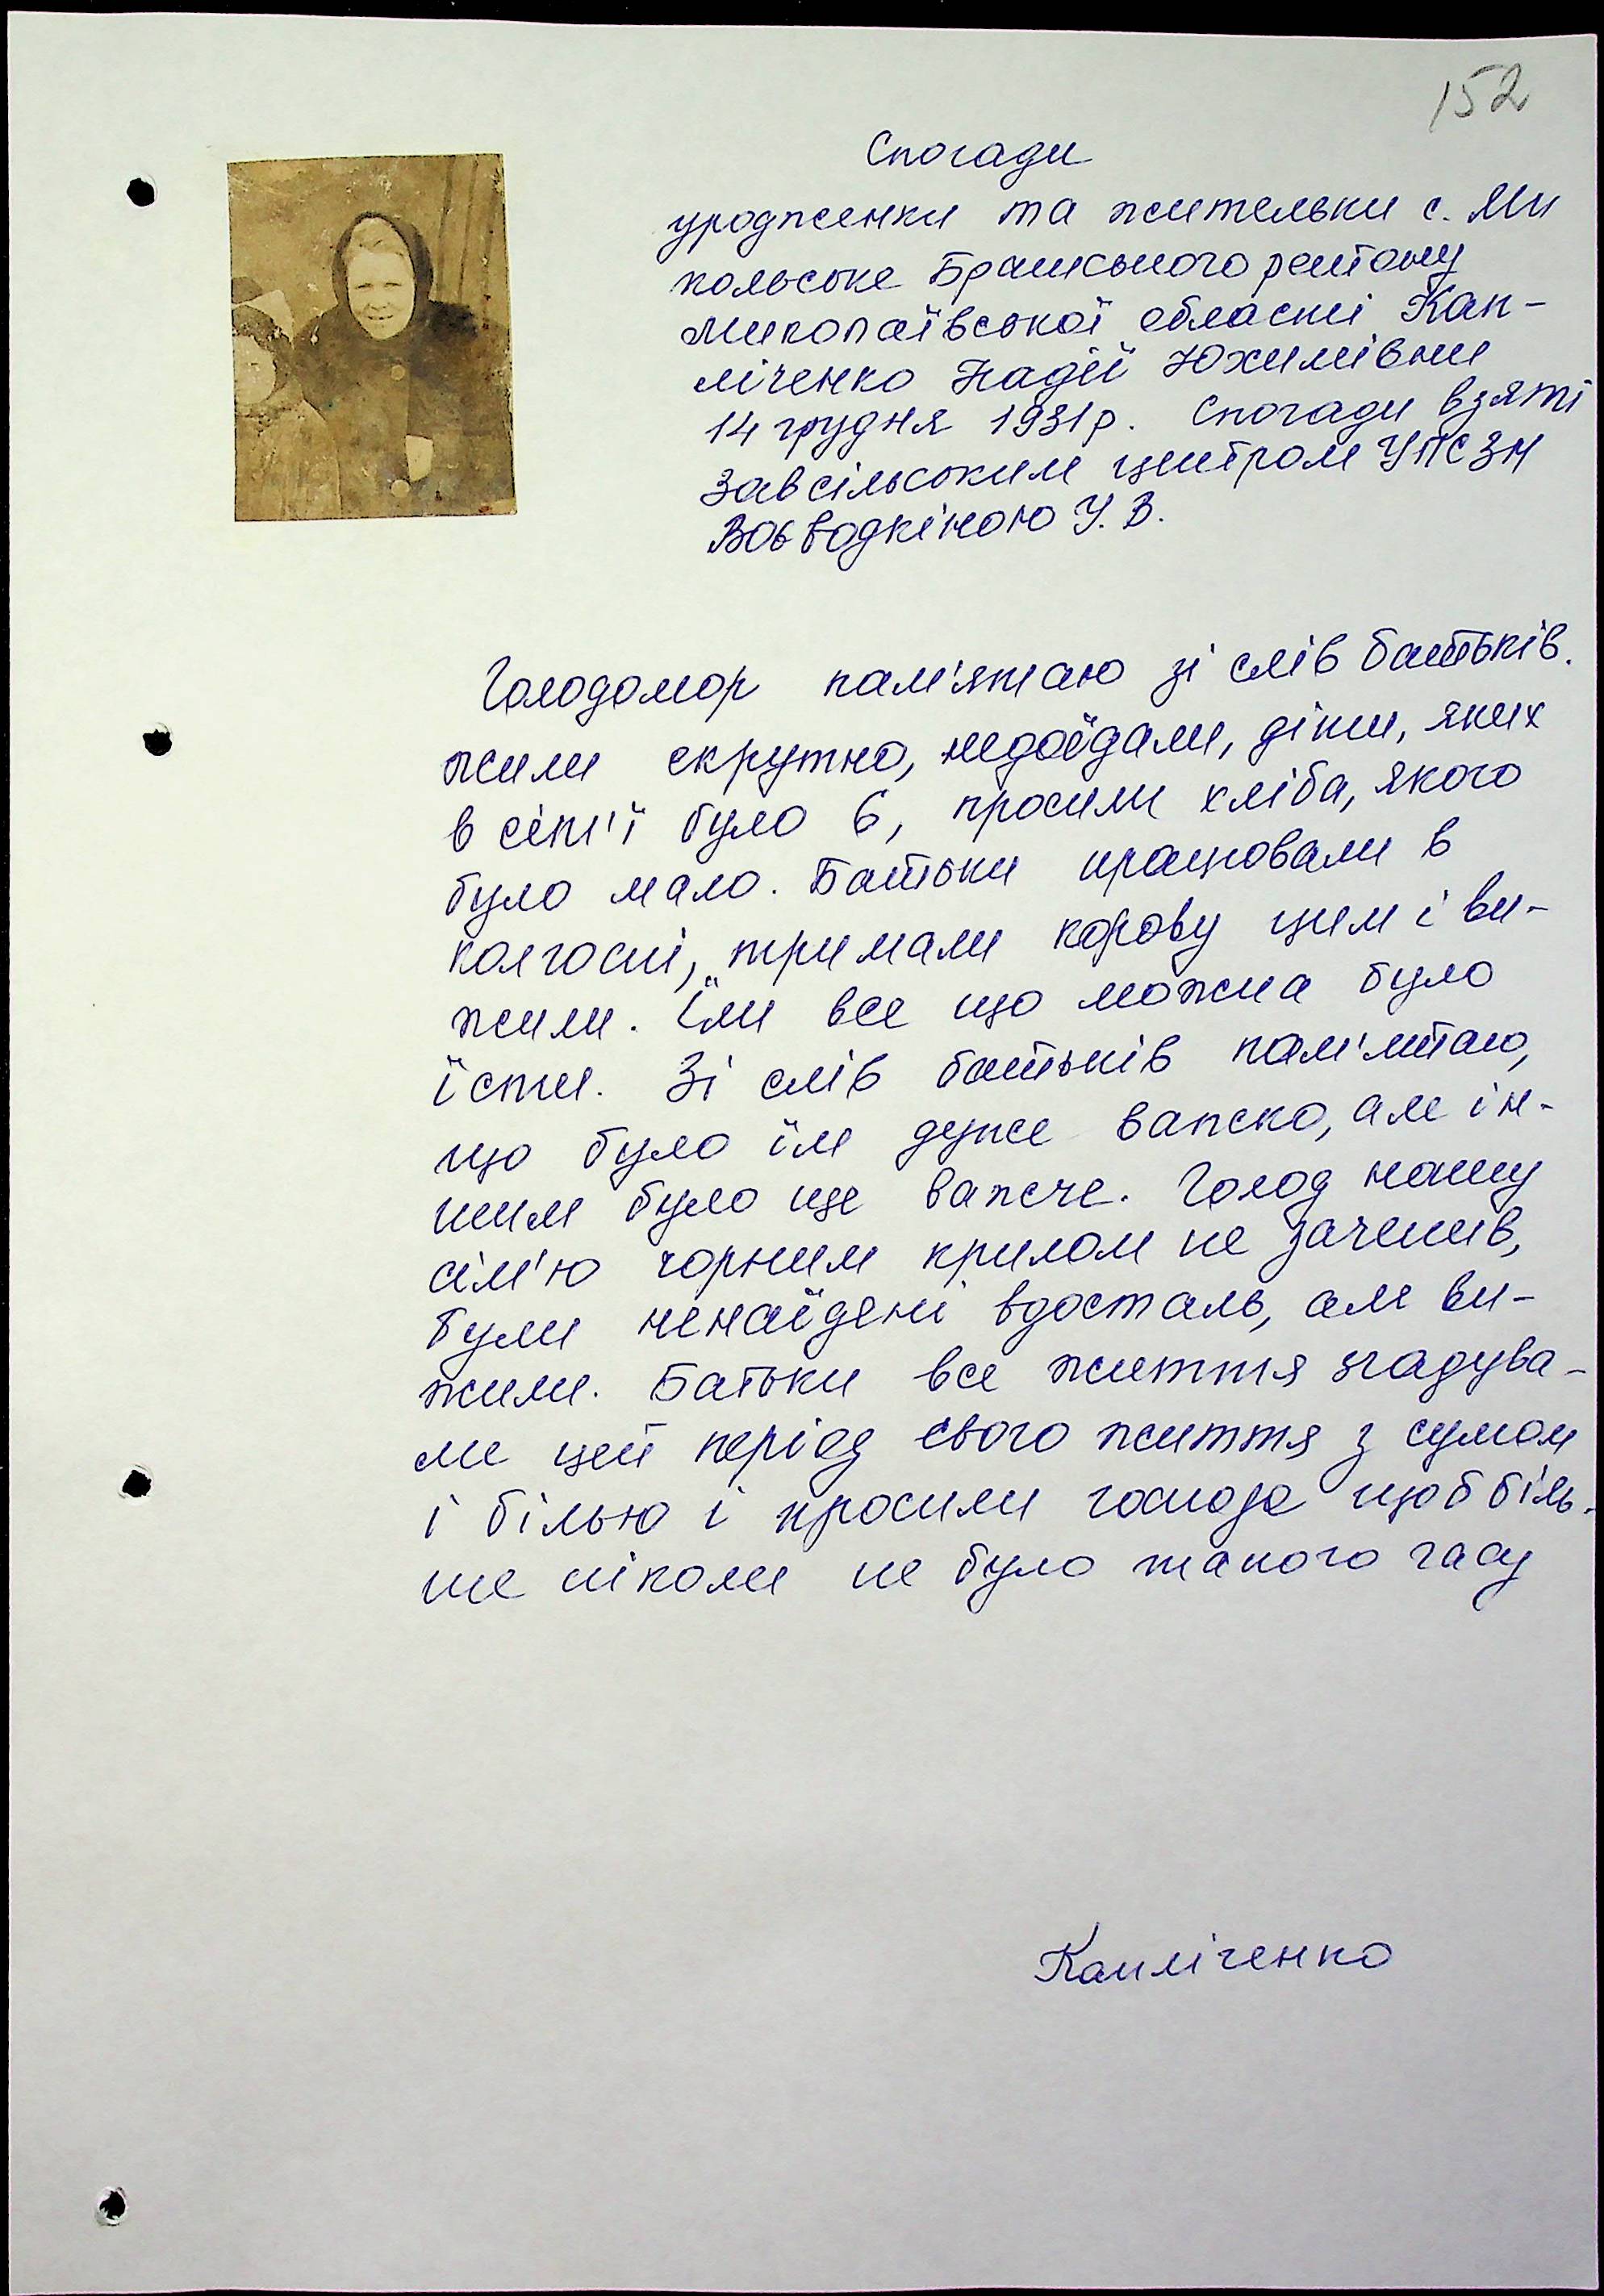 152
Спогади
уродженки та жительки с. Ми
кольське Братського району
Миколаївської області Кап-
ліченко Надії Юхимівни
14 грудня 1931р. Спогади взяті
Зав сільським центром УПСЗН
Воєводкіною У. В.
Голодомор пам'ятаю зі слів батьків.
жили скрутно, недоїдали, діти, яких
в сім'ї було 6, просили хліба, якого
було мало. Батьки працювали в
колгоспі, тримали корову цим і ви-
жили. Їли все що можна було
їсти. Зі слів батьків пам'ятаю,
що було їм дуже важко, але ін-
шим було ще важче. Голод нашу
сім'ю чорним крилом не зачепив,
були ненаїдені вдосталь, але ви-
жили. Батьки все життя згадува-
ли цей період свого життя з сумом
і білью і просили господа щоб біль-
ше ніколи не було такого часу
Капліченко